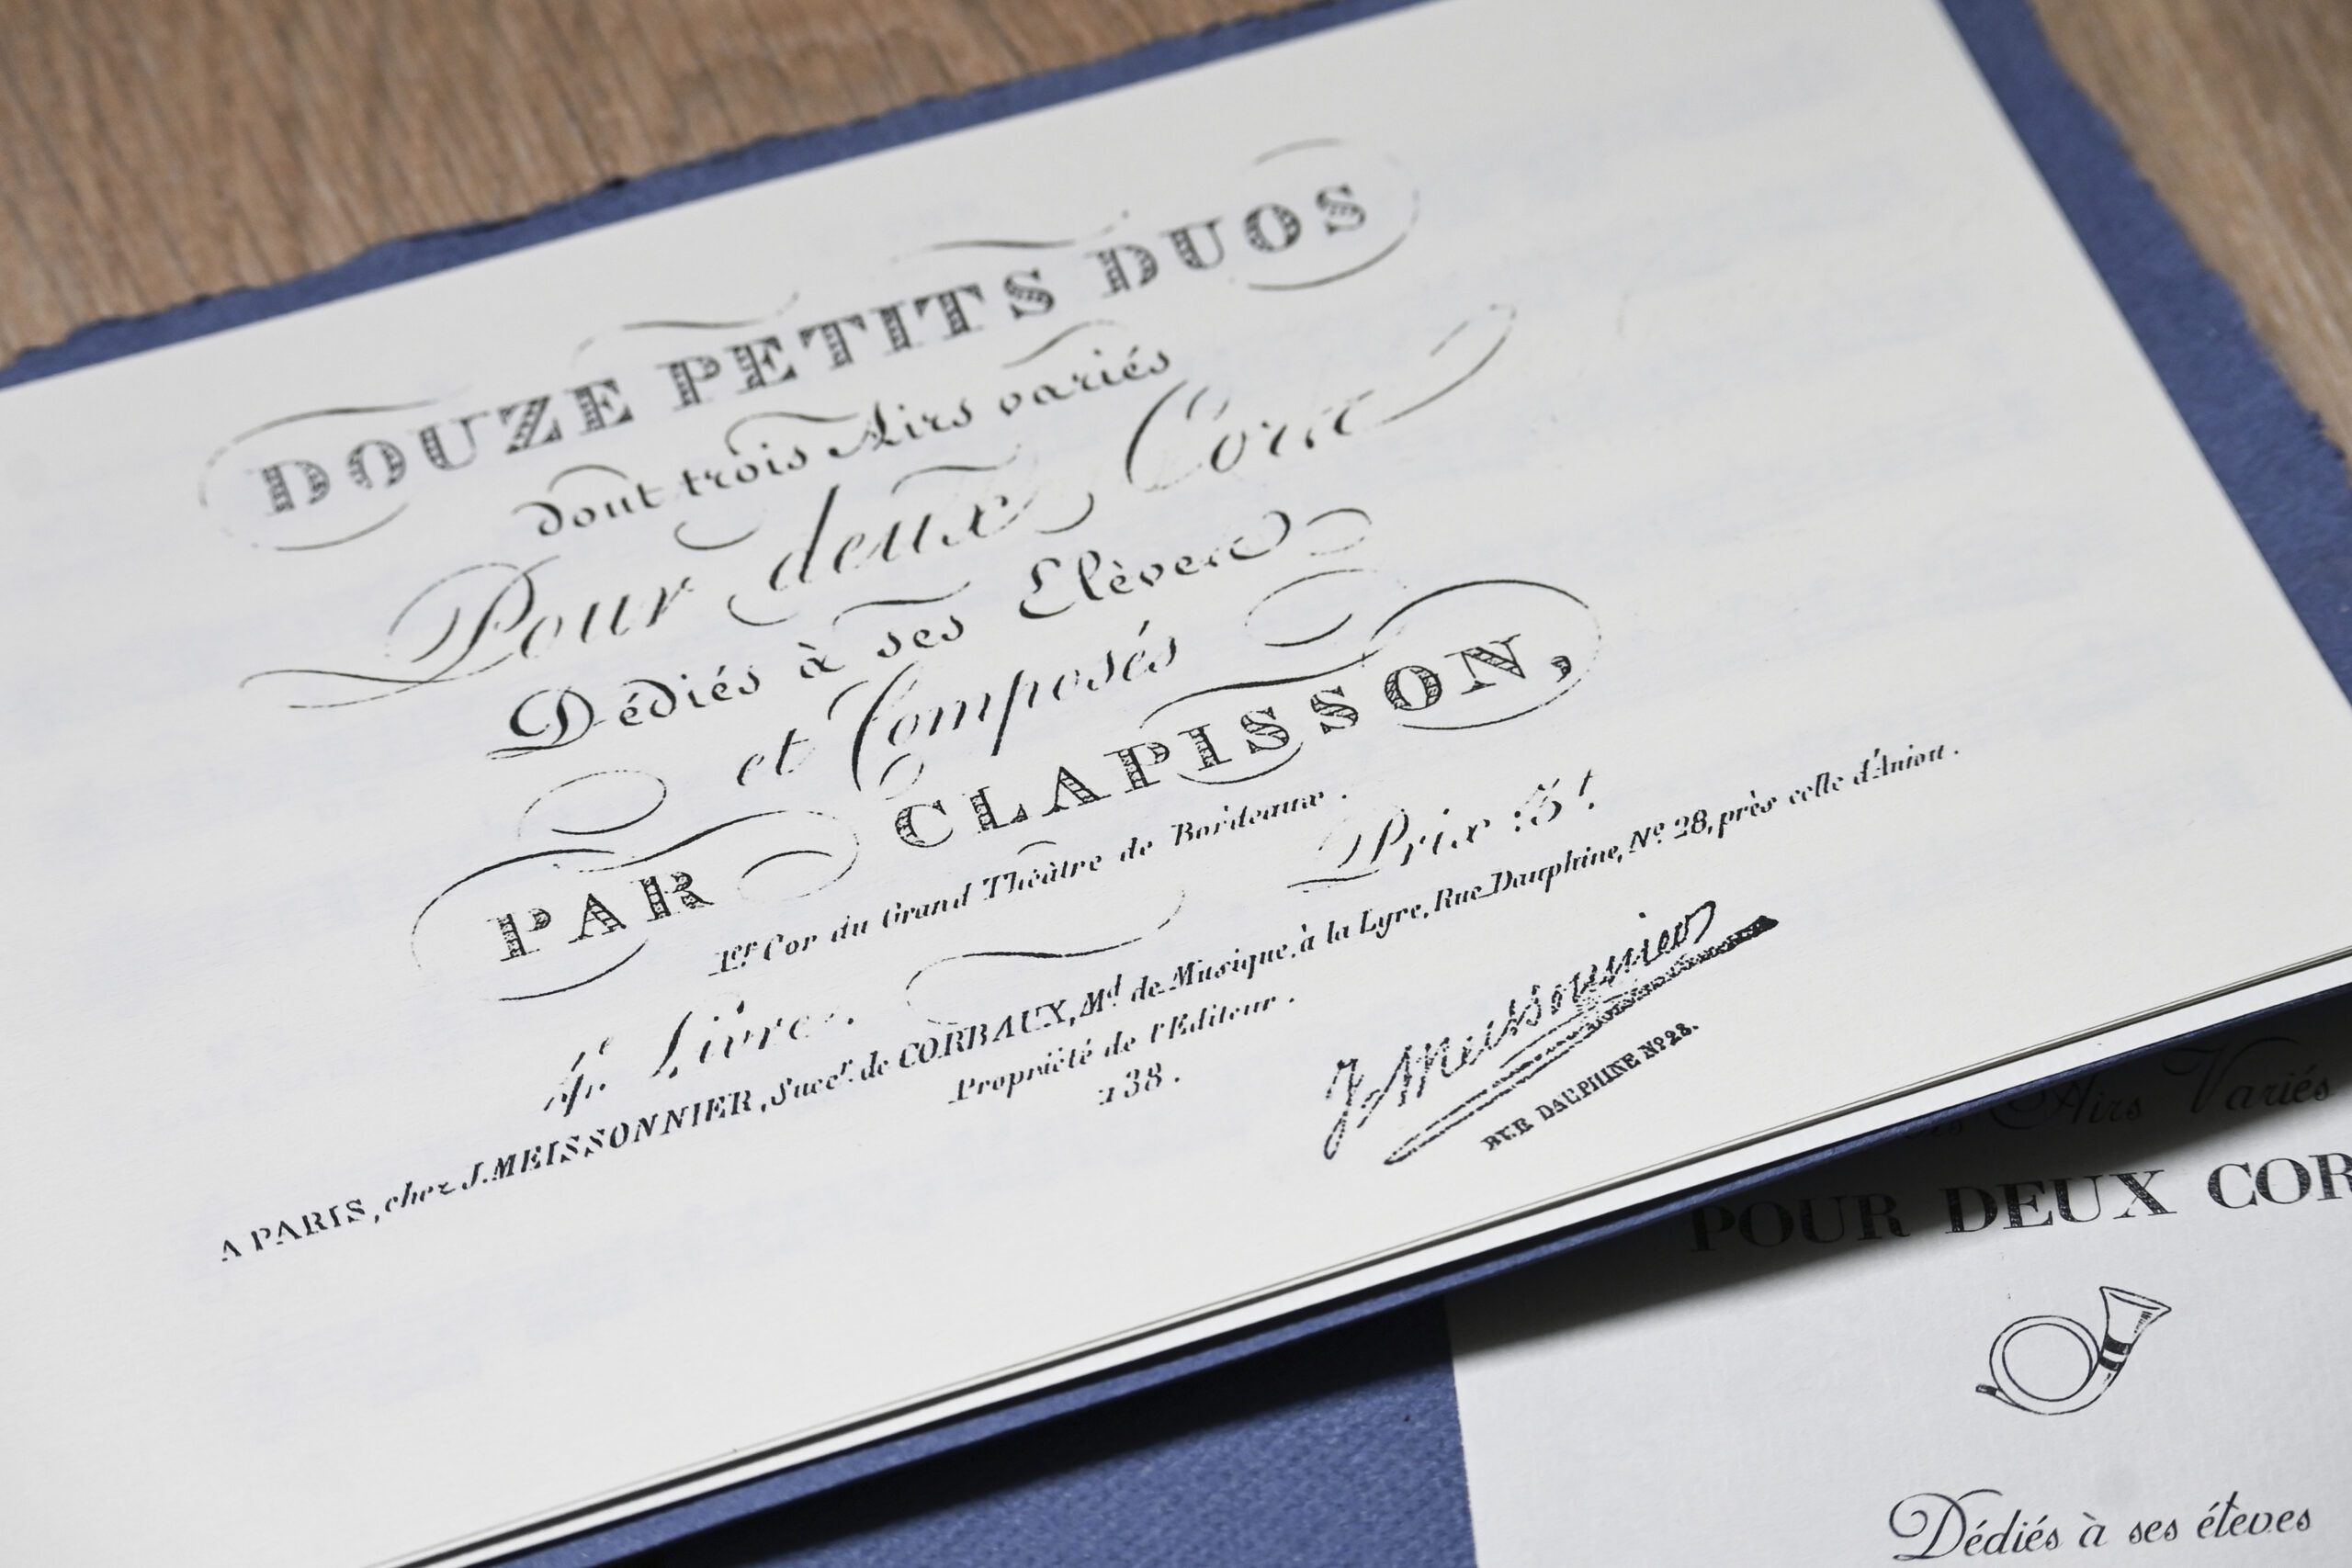 DOUZE PETITS DUOS
dont trois Airs variés
Pour deux Cors
Dédiés à ses Elèves
et Composés
PAR CLAPISSON,
1er Cor du Grand Théâtre de Bordeaux.
4e Livre. Prix: 5f
A PARIS, chez J. MEISSONNIER, Succr. de CORBAUX, Md de Musique, à la Lyre, Rue Dauphine, No. 28, près celle d'Anjou.
Propriété de l'Editeur.
138.
J Meissonnier
RUE DAUPHINE No 28.
Airs Variés
POUR DEUX COR
Dédiés à ses élèves